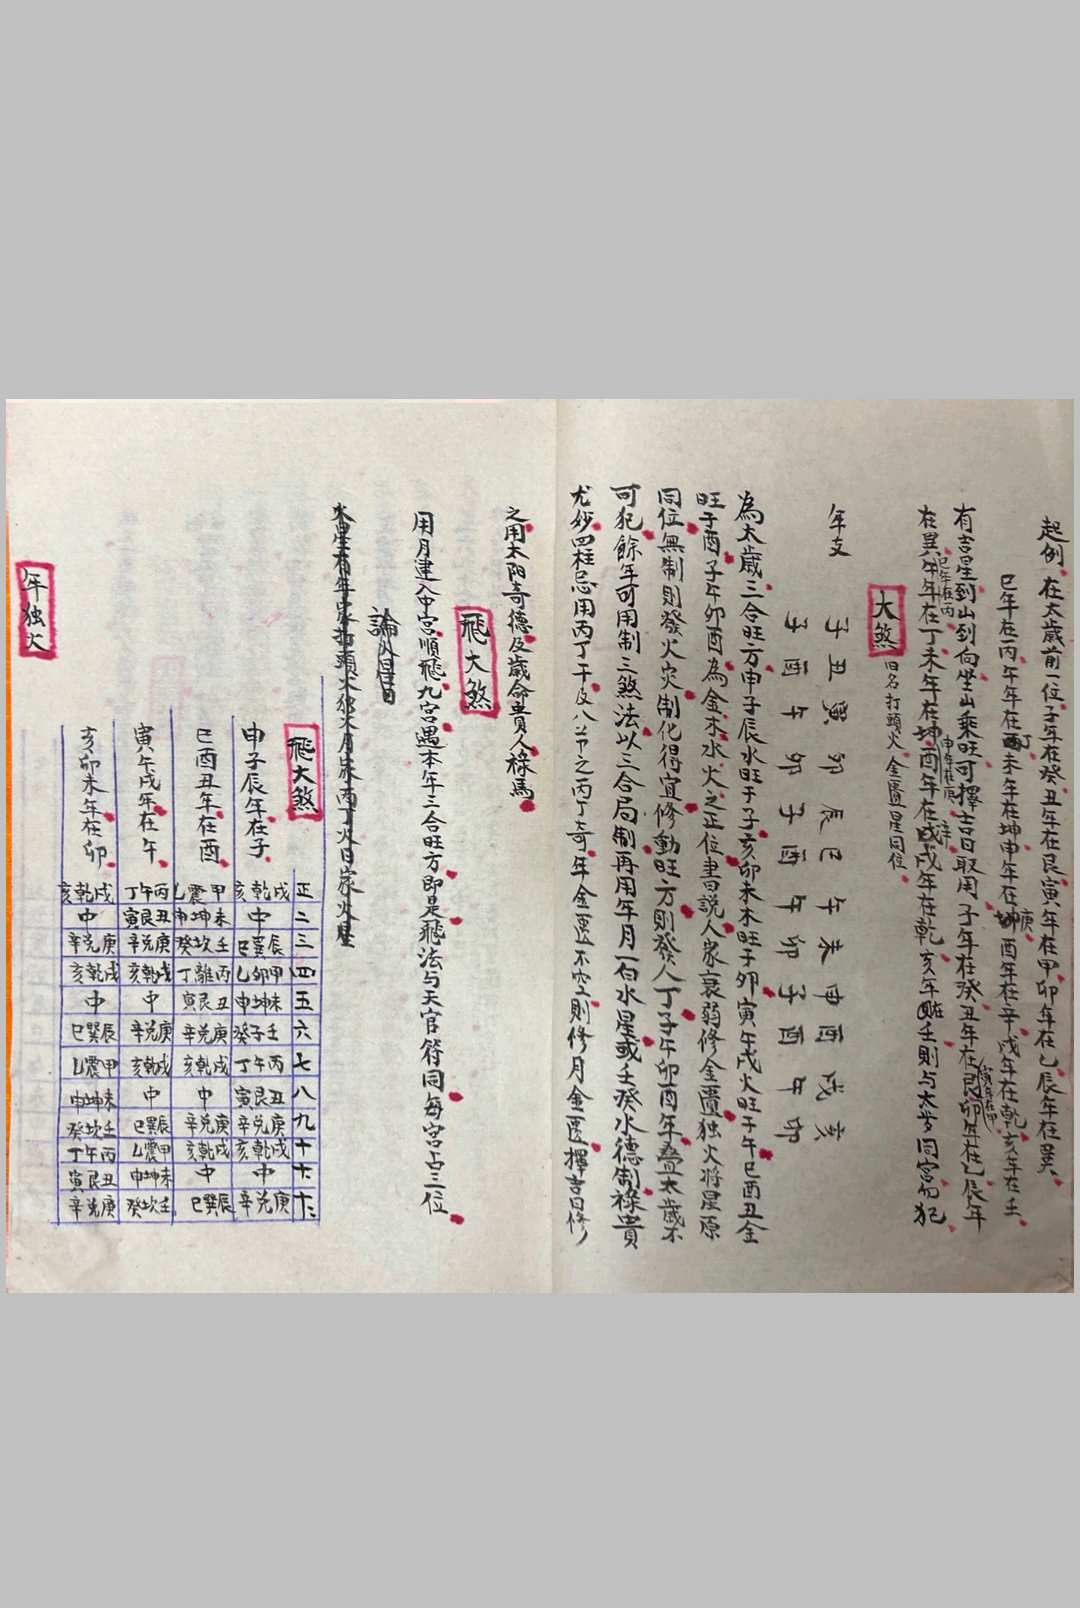 起例 在太歲前一位子年在癸丑年在艮寅年在甲卯年在乙辰年在巽
巳年在丙午年在丁未年在坤申年在庚酉年在辛戌年在乾亥年在壬
有吉星到山到向坐山乘旺可擇吉日取用子年在癸丑年在艮寅年在甲卯年在乙辰年
在巽巳年在丙午年在丁未年在坤申年在庚酉年在辛戌年在乾亥年在壬則与大岁同宮勿犯
大煞 旧名打頭火金匱星同位
年支 子丑寅卯辰巳午未申酉戌亥
子酉午卯子酉午卯子酉午卯
為太歲三合旺方申子辰水旺于子亥卯未木旺于卯寅午戌火旺于午巳酉丑金
旺于酉子午卯酉為金木水火之正位書曰說人家衰弱修金匱独火將星原
同位無制則發火灾制化得宜修動旺方則發人丁子午卯酉年叠太歲不
可犯餘年可用制三煞法以三合局制再用年月一白水星或壬癸水德制祿貴
尤妙四柱忌用丙丁干及八节之丙丁奇年金匱不空則修月金匱擇吉日修
之用太阳奇德及歲命貴人祿馬
飛大煞
用月建入中宮順飛九宮遇本年三合旺方即是飛法与天官符同每宮占三位
論火星日
火星有年家打頭火独火月家丙丁火日家火星
飛大煞 正 二 三 四 五 六 七 八 九 十 十一 十二
申子辰年在子 亥乾戌 中 巳巽辰 乙卯甲 申坤未 癸子壬 丁午丙 寅艮丑 辛兑庚 亥乾戌 中 辛兑庚
巳酉丑年在酉 乙震甲 申坤未 癸坎壬 丁離丙 寅艮丑 辛兑庚 亥乾戌 中 辛兑庚 亥乾戌 中 巳巽辰
寅午戌年在午 丁午丙 寅艮丑 辛兑庚 亥乾戌 中 辛兑庚 亥乾戌 中 巳巽辰 乙震甲 申坤未 癸坎壬
亥卯未年在卯 亥乾戌 中 辛兑庚 亥乾戌 中 巳巽辰 乙震甲 申坤未 癸坎壬 丁午丙 寅艮丑 辛兑庚
年独火